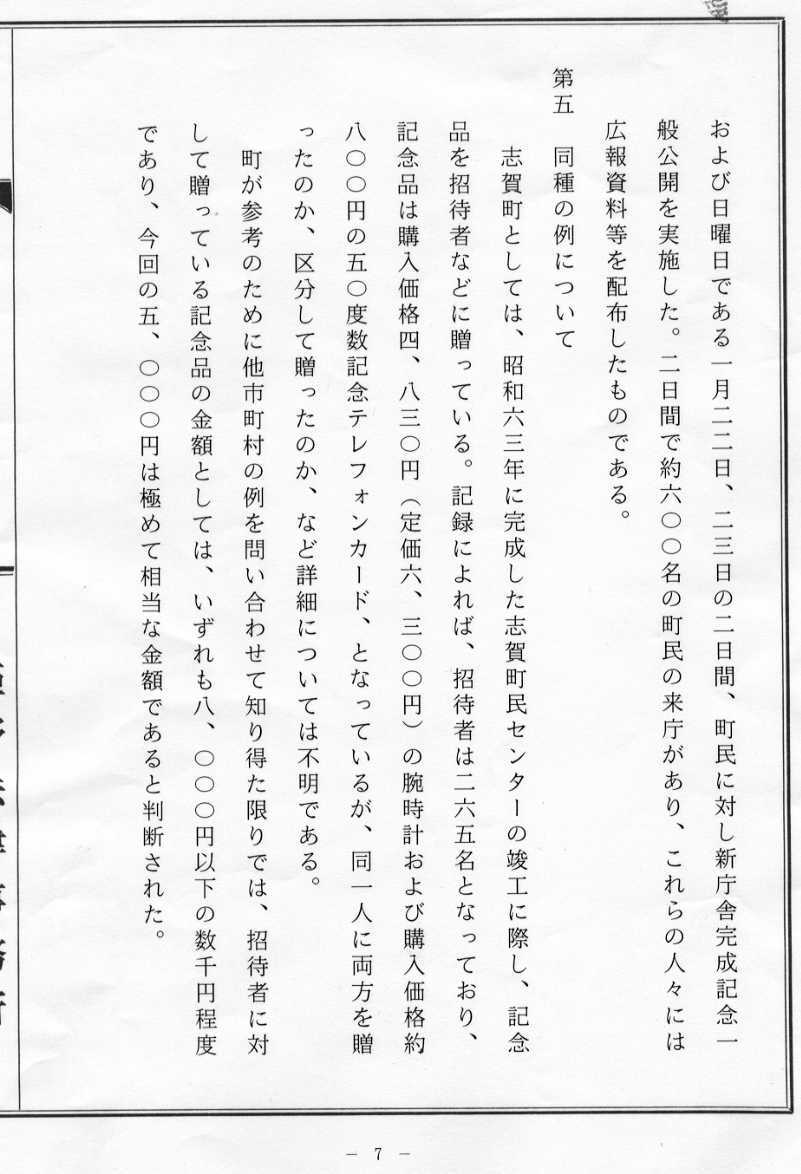 および日曜日である一月二二日、二三日の二日間、町民に対し新庁舎完成記念一
般公開を実施した。二日間で約六〇〇名の町民の来庁があり、これらの人々には
広報資料等を配布したものである。
第五　同種の例について
志賀町としては、昭和六三年に完成した志賀町民センターの竣工に際し、記念
品を招待者などに贈っている。記録によれば、招待者は二六五名となっており、
記念品は購入価格四、八三〇円（定価六、三〇〇円）の腕時計および購入価格約
八〇〇円の五〇度数記念テレフォンカード、となっているが、同一人に両方を贈
ったのか、区分して贈ったのか、など詳細については不明である。
町が参考のために他市町村の例を問い合わせて知り得た限りでは、招待者に対
して贈っている記念品の金額としては、いずれも八、〇〇〇円以下の数千円程度
であり、今回の五、〇〇〇円は極めて相当な金額であると判断された。
－ 7 －